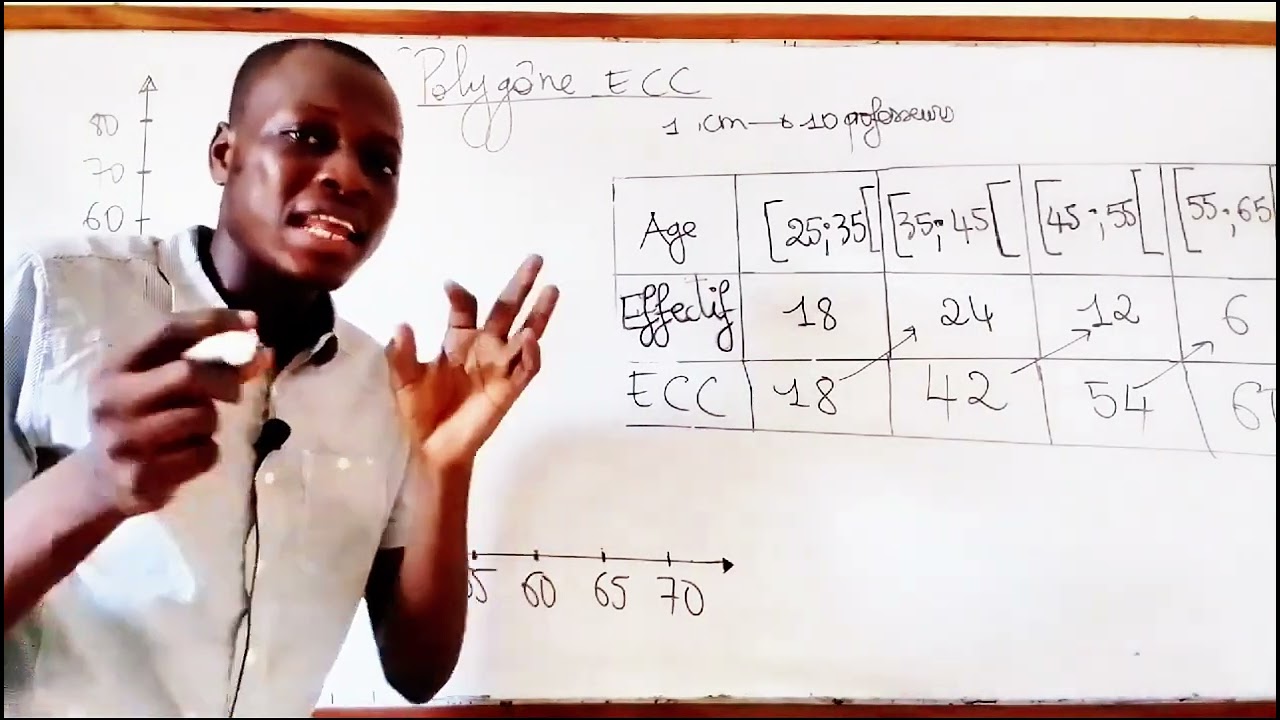 Polygône ECC
1 cm → 10 professeurs
80
70
60
Age [25;35[ [35;45[ [45;55[ [55;65[
Effectif 18 24 12 6
ECC 18 42 54
60 65 70